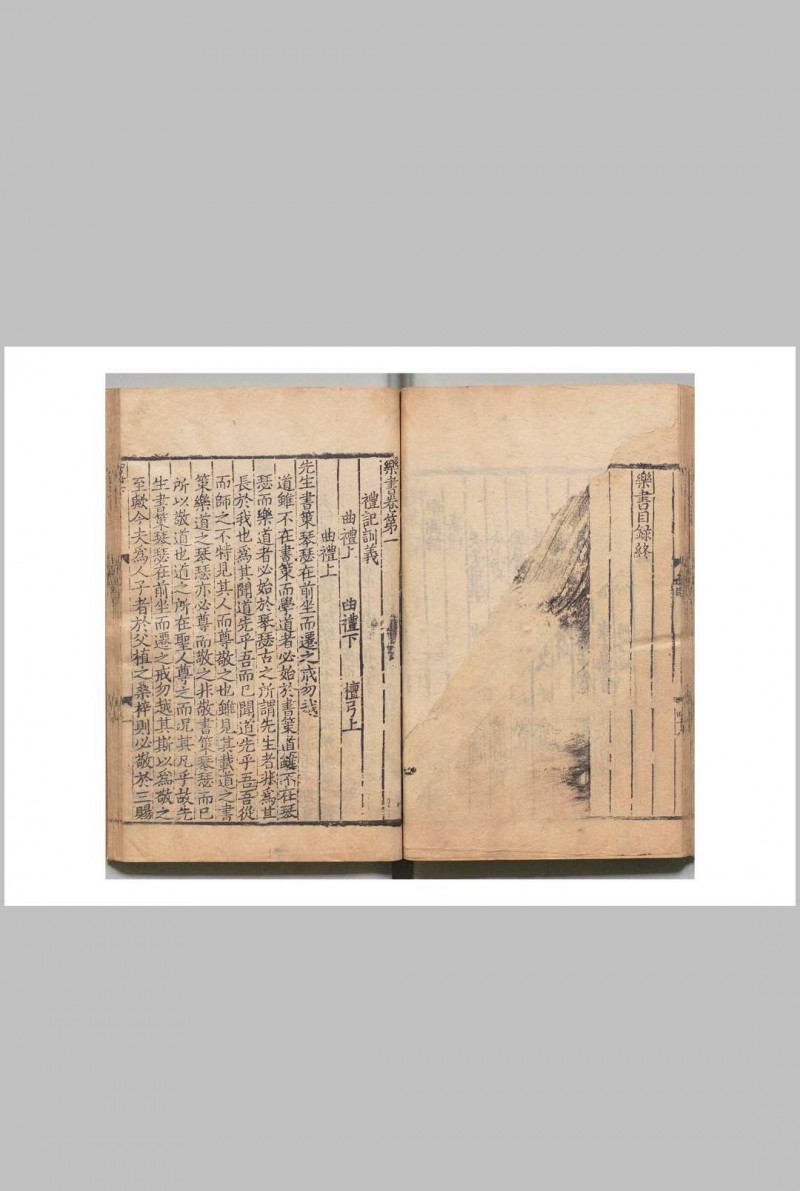 樂書目録終
樂書卷第一
禮記訓義
曲禮上　曲禮下　檀弓上
曲禮上
先生書策琴瑟在前坐而遷之戒勿越
道雖不在書策而學道者必始於書策道雖不在琴
瑟而樂道者必始於琴瑟古之所謂先生者非為其
長於我也為其聞道先乎吾而已聞道先乎吾吾從
而師之不特見其人而尊敬之也雖見其載道之書
策樂道之琴瑟亦必尊而敬之非敬書策琴瑟而已
所以敬道也道之所在聖人尊之而況其凡乎故先
生書策琴瑟在前坐而遷之戒勿越其斯以為敬之
至歟今夫為人子者於父植之桑梓則必敬於三賜